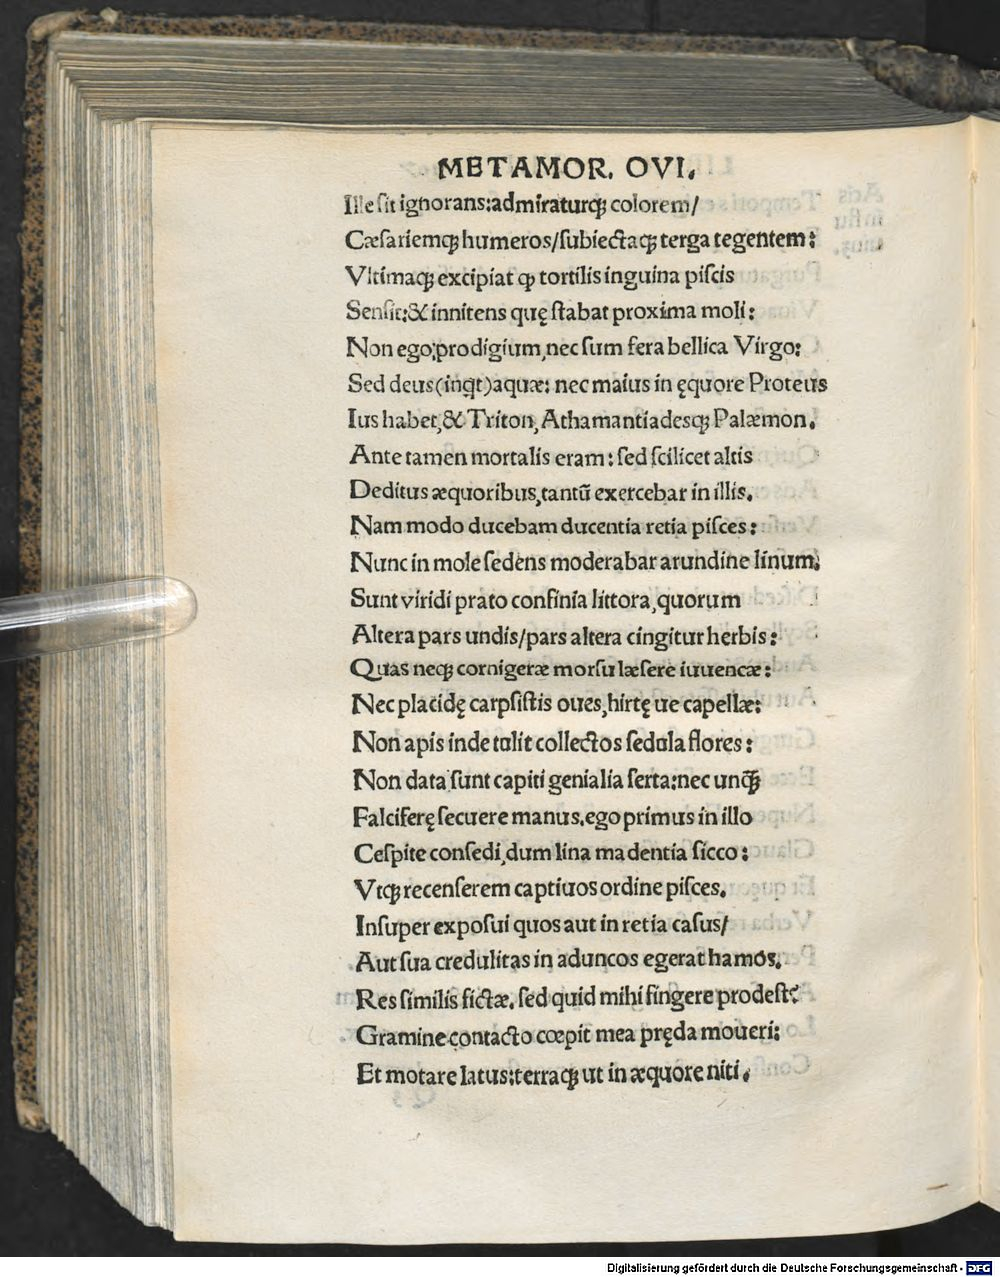 METAMOR. OVI.
Ille ſit ignorans:admiraturqꝫ colorem/
Cæſariemqꝫ humeros/ſubiectaqꝫ terga tegentem:
Vltimaqꝫ excipiat ꝙ tortilis inguina piſcis
Senſit:& innitens quę ſtabat proxima moli:
Non ego,prodigium,nec ſum fera bellica Virgo:
Sed deus(inqt)aquæ: nec maius in ęquore Proteus
Ius habet,& Triton, Athamantiadesqꝫ Palæmon.
Ante tamen mortalis eram: ſed ſcilicet altis
Deditus æquoribus,tantū exercebar in illis.
Nam modo ducebam ducentia retia piſces:
Nunc in mole ſedens moderabar arundine linum.
Sunt viridi prato confinia littora,quorum
Altera pars undis/pars altera cingitur herbis:
Quas neqꝫ cornigeræ morſu læſere iuuencæ:
Nec placidę carpſiſtis oues,hirtę ue capellæ:
Non apis inde tulit collectos ſedula flores:
Non data ſunt capiti genialia ſerta:nec unq̄ꝫ
Falciferę ſecuere manus.ego primus in illo
Ceſpite conſedi,dum lina madentia ſicco:
Vtqꝫ recenſerem captiuos ordine piſces.
Inſuper expoſui quos aut in retia caſus/
Aut ſua credulitas in aduncos egerat hamos.
Res ſimilis fictæ. ſed quid mihi fingere prodeſt?
Gramine contacto cœpit mea pręda moueri:
Et motare latus:terraqꝫ ut in æquore niti.
Digitalisierung gefördert durch die Deutsche Forschungsgemeinschaft - DFG